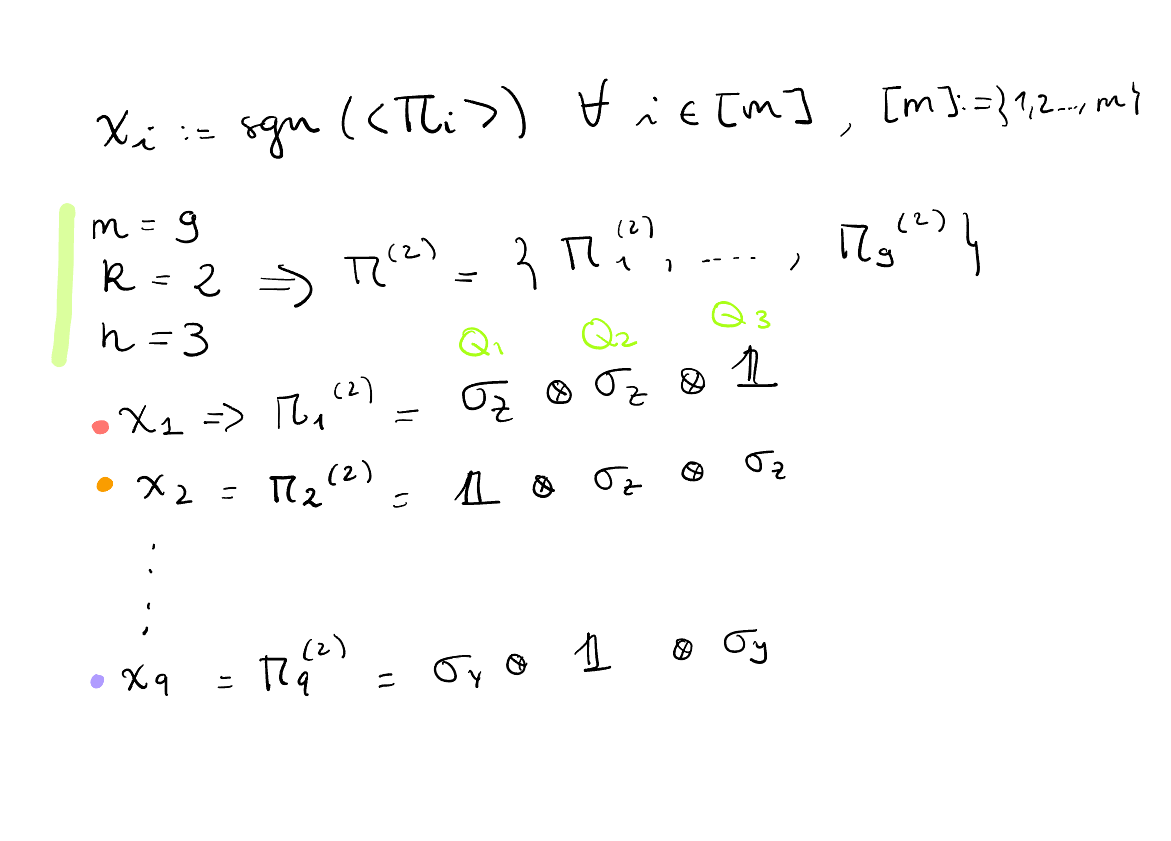 x_i := sgn (<Π_i>) ∀ i ∈ [m] , [m] := {1,2...,m}
m = 9
k = 2 ⇒ Π^(2) = { Π_1^(2) , ..... , Π_9^(2) }
n = 3
Q1 Q2 Q3
• x_1 => Π_1^(2) = σ_z ⊗ σ_z ⊗ 𝟙
• x_2 = Π_2^(2) = 𝟙 ⊗ σ_z ⊗ σ_z
⋮
• x_9 = Π_9^(2) = σ_y ⊗ 𝟙 ⊗ σ_y